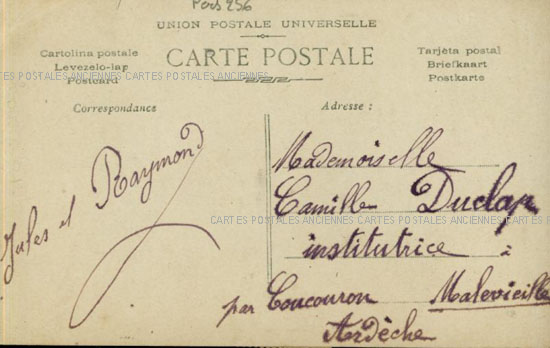 Pers 256
UNION POSTALE UNIVERSELLE
CARTE POSTALE
Cartolina postale
Levelező-lap
Postcard
Tarjeta postal
Briefkaart
Postkarte
CARTES POSTALES ANCIENNES CARTES POSTALES ANCIENNES CARTES POSTALES
Correspondance
Adresse :
Jules et Raymond
Mademoiselle
Camille Duclap
CARTES POSTALES ANCIENNES CARTES POSTALES
institutrice à
par Coucouron Malevieille
Ardèche